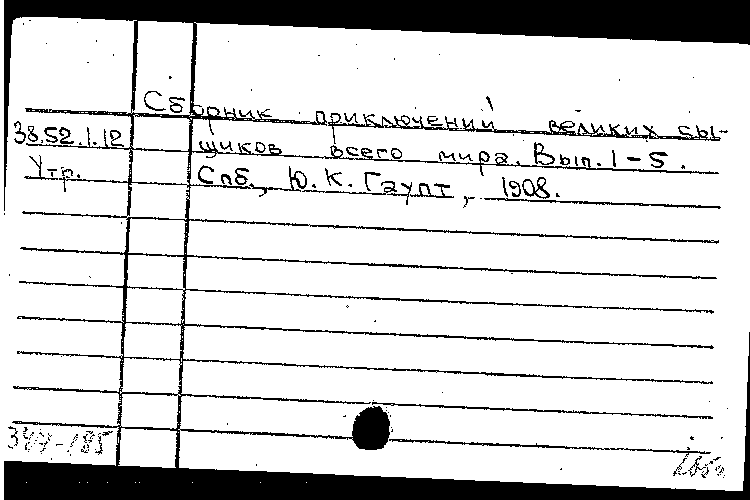 Сборник приключений великих сы-
38.52.1.12 щиков всего мира. Вып. 1-5.
Утр. Спб., Ю. К. Гаупт, 1908.
344-185